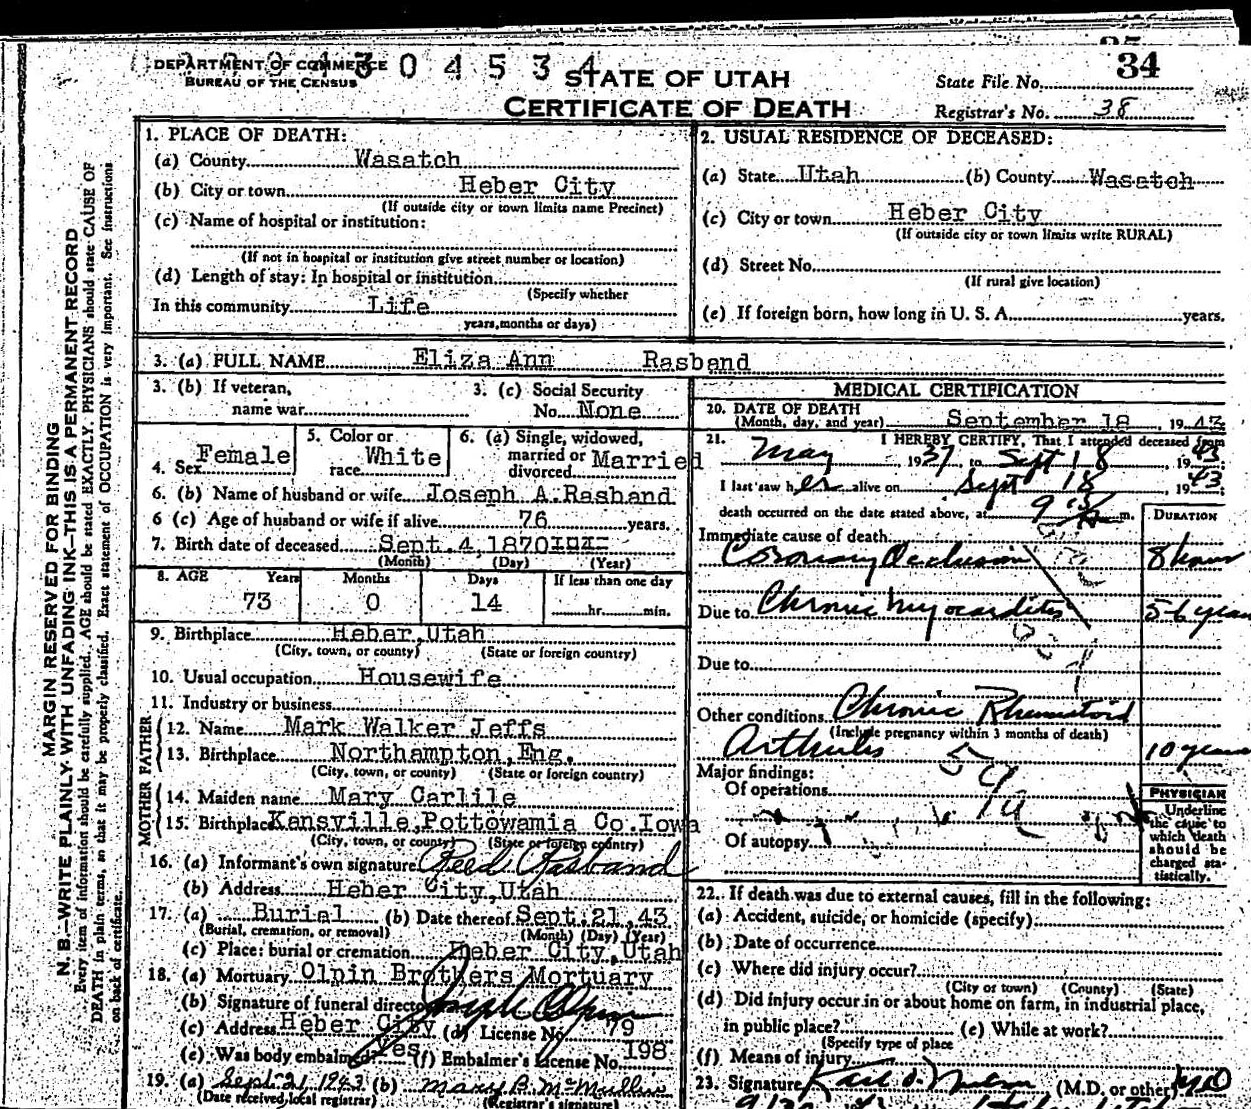 34
DEPARTMENT OF COMMERCE
BUREAU OF THE CENSUS
0 4 5 3 4
STATE OF UTAH
CERTIFICATE OF DEATH
State File No.
Registrar's No. 38
MARGIN RESERVED FOR BINDING
N. B.—WRITE PLAINLY WITH UNFADING INK—THIS IS A PERMANENT RECORD
Every item of information should be carefully supplied. AGE should be stated EXACTLY. PHYSICIANS should state CAUSE OF
DEATH in plain terms, so that it may be properly classified. Exact statement of OCCUPATION is very important. See instructions
on back of certificate.
1. PLACE OF DEATH:
(a) County Wasatch
(b) City or town Heber City
(If outside city or town limits name Precinct)
(c) Name of hospital or institution:
(If not in hospital or institution give street number or location)
(d) Length of stay: In hospital or institution
(Specify whether
In this community Life
years, months or days)
2. USUAL RESIDENCE OF DECEASED:
(a) State Utah (b) County Wasatch
(c) City or town Heber City
(If outside city or town limits write RURAL)
(d) Street No.
(If rural give location)
(e) If foreign born, how long in U. S. A. years.
3. (a) FULL NAME Eliza Ann Rasband
3. (b) If veteran,
name war
3. (c) Social Security
No. None
4. Sex Female
5. Color or
race White
6. (a) Single, widowed,
married or
divorced Married
6. (b) Name of husband or wife Joseph A. Rasband
6 (c) Age of husband or wife if alive 76 years.
7. Birth date of deceased Sept. 4, 1870
(Month) (Day) (Year)
8. AGE Years Months Days If less than one day
73 0 14 hr. min.
9. Birthplace Heber, Utah
(City, town, or county) (State or foreign country)
10. Usual occupation Housewife
11. Industry or business
FATHER
12. Name Mark Walker Jeffs
13. Birthplace Northampton, Eng.
(City, town, or county) (State or foreign country)
MOTHER
14. Maiden name Mary Carlile
15. Birthplace Kansville, Pottowamia Co. Iowa
(City, town, or county) (State or foreign country)
16. (a) Informant's own signature Reed Rasband
(b) Address Heber City, Utah
17. (a) Burial (b) Date thereof Sept. 21, 43
(Burial, cremation, or removal) (Month) (Day) (Year)
(c) Place: burial or cremation Heber City, Utah
18. (a) Mortuary Olpin Brothers Mortuary
(b) Signature of funeral director Joseph Olpin
(c) Address Heber City (d) License No. 79
(e) Was body embalmed? Yes (f) Embalmer's License No. 198
19. (a) Sept 21, 1943 (b) Mary B. McMullin
(Date received local registrar) (Registrar's signature)
MEDICAL CERTIFICATION
20. DATE OF DEATH
(Month, day, and year) September 18, 1943
21. I HEREBY CERTIFY, That I attended deceased from
May, 1937, to Sept 18, 1943
I last saw her alive on Sept 18, 1943
death occurred on the date stated above, at m.
DURATION
Immediate cause of death
Coronary Occlusion 8 hours
Due to Chronic Myocarditis 5-6 years
Due to
Other conditions Chronic Rheumatoid
(Include pregnancy within 3 months of death)
Arthritis 10 years
Major findings:
Of operations
Of autopsy
PHYSICIAN
Underline
the cause to
which death
should be
charged sta-
tistically.
22. If death was due to external causes, fill in the following:
(a) Accident, suicide, or homicide (specify)
(b) Date of occurrence
(c) Where did injury occur?
(City or town) (County) (State)
(d) Did injury occur in or about home on farm, in industrial place,
in public place? (e) While at work?
(Specify type of place
(f) Means of injury
23. Signature (M.D. or other) MD